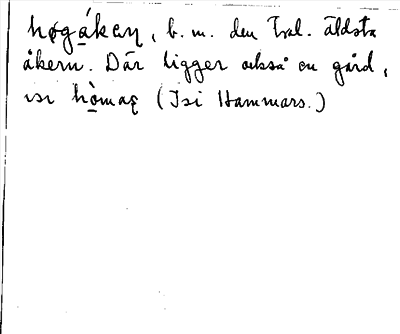 høgákeɳ, b. m. den Trol. äldsta
åkern. Där ligger också en gård,
ısı hòmaʂ (Isi Hammars.)